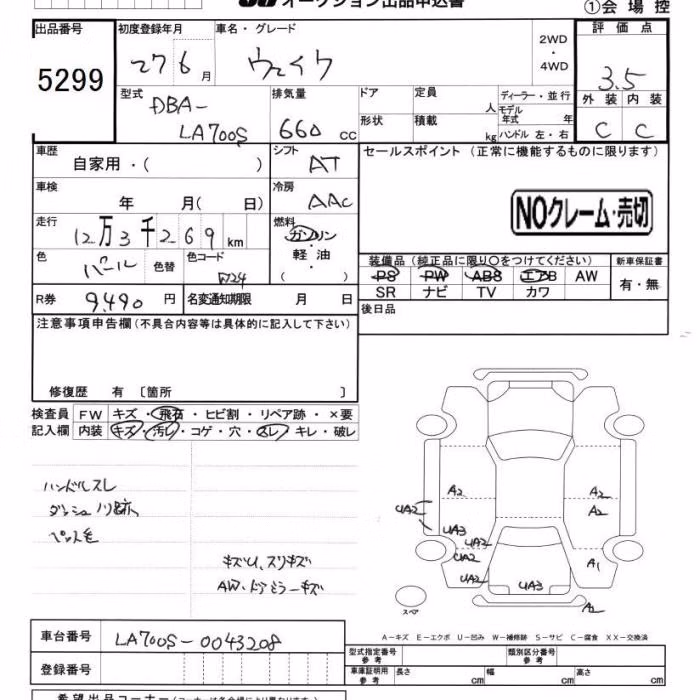 オークション出品申込書
①会場控
出品番号 初度登録年月 車名・グレード 2WD・4WD 評価点
5299 27 6月 ウェイク 3.5
型式 排気量 ドア 定員 ディーラー・並行 外装 内装
DBA-LA700S 660cc 人 モデル年式 年 C C
形状 積載 kg ハンドル 左・右
車歴 シフト セールスポイント（正常に機能するものに限ります）
自家用・( ) AT
車検 冷房
年 月( 日) AAC NOクレーム・売切
走行 燃料
12万3千269km ガソリン・軽油・( )
色 色替 色コード 装備品（純正品に限り○をつけてください） 新車保証書
パール W24 PS PW ABS エアB AW 有・無
SR ナビ TV カワ
R券 9,490円 名変通知期限 月 日 後日品
注意事項申告欄（不具合内容等は具体的に記入して下さい）
修復歴 有 〔箇所 〕
検査員 FW キズ・飛石・ヒビ割・リペア跡・×要
記入欄 内装 キズ・汚レ・コゲ・穴・スレ・キレ・破レ
ハンドルスレ
ダッシュノリ跡
ペット毛
キズU、スリキズ
AW・ドアミラーキズ
A2 A2
UA2 A2
UA3
UA2
UA2 A1
UA2 UA3
A2
スペア
A－キズ E－エクボ U－凹み W－補修跡 S－サビ C－腐食 XX－交換済
車台番号 LA700S-0043208 型式指定番号 参考 類別区分番号 参考
登録番号 車庫証明用 参考 長さ cm 幅 cm 高さ cm
希望出品コーナー